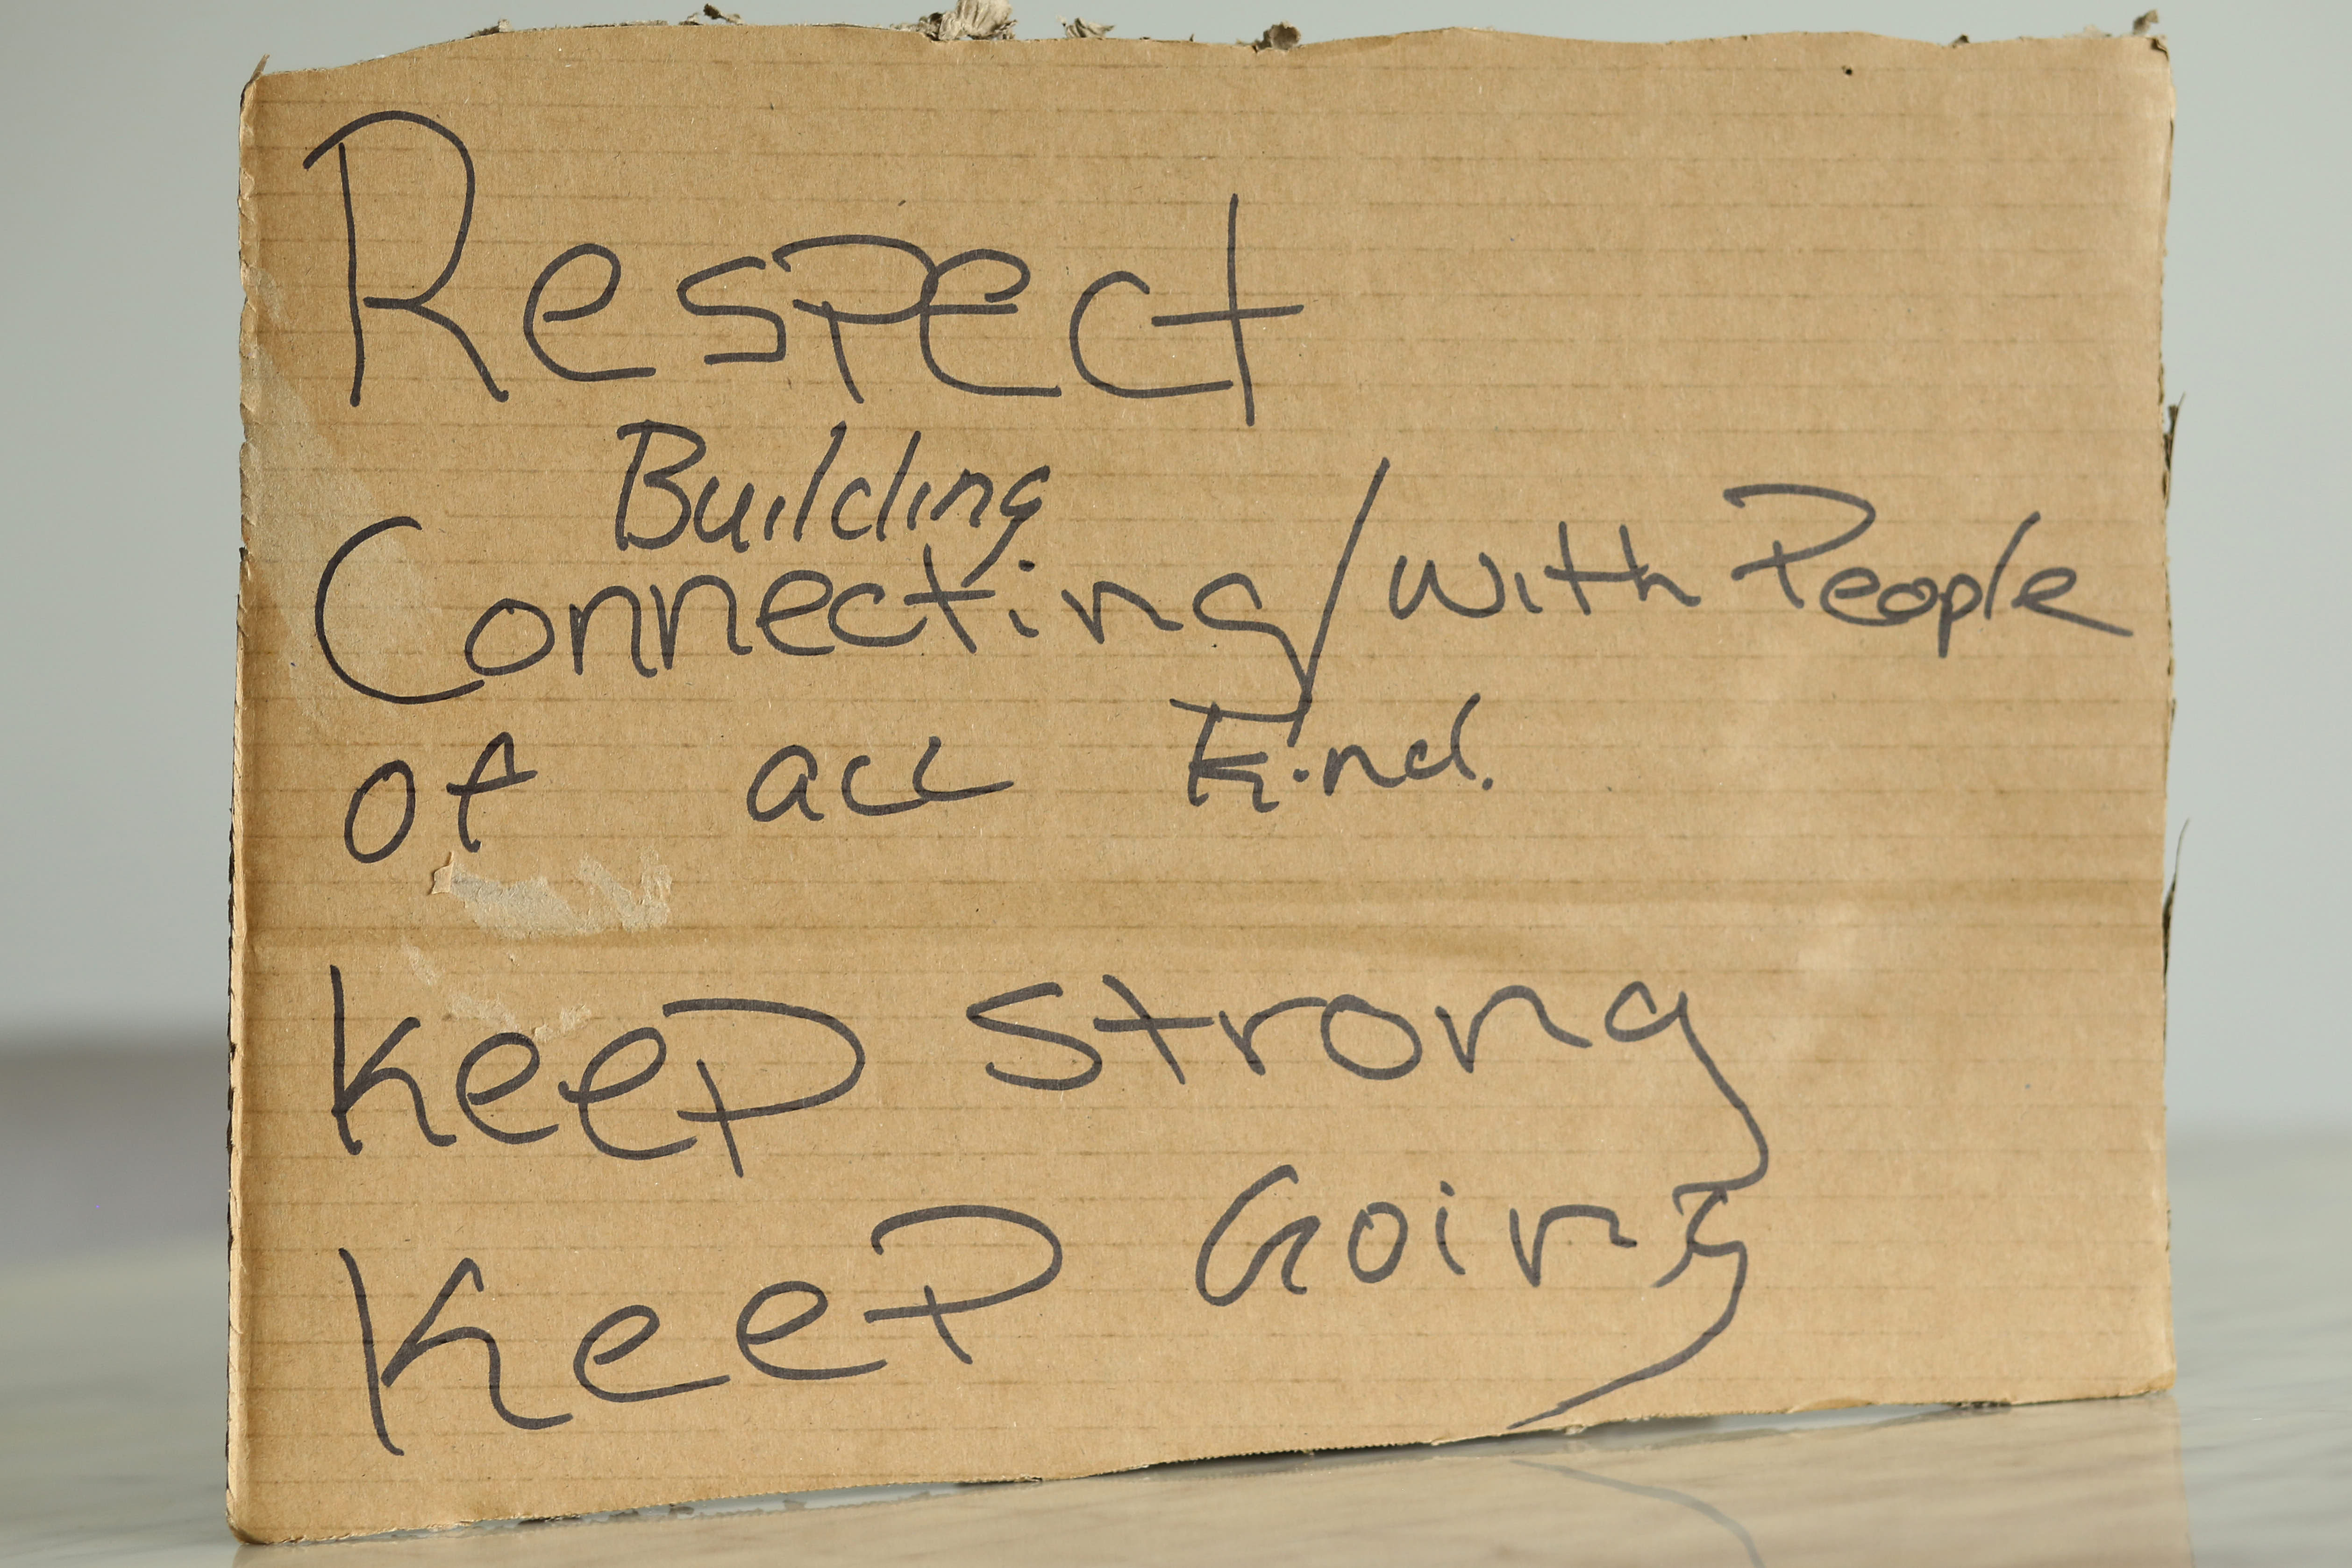 Respect
Building
Connecting/with People
of all kind.
Keep strong
Keep Going